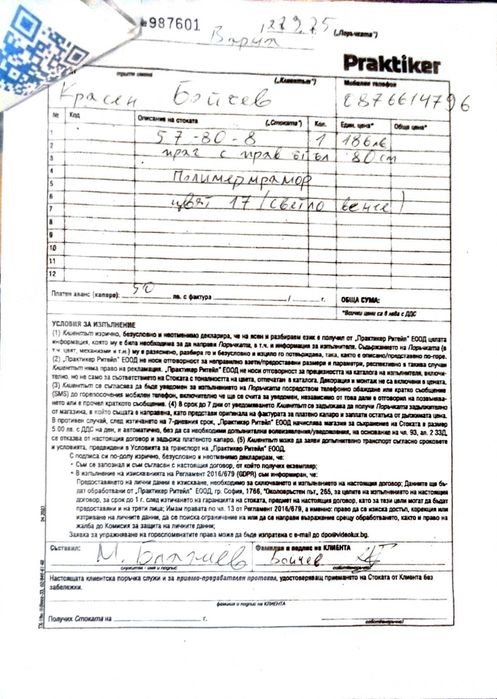 №987601
Варна
("Поръчката")
Praktiker
трите имена ("Клиентът") Мобилен телефон
Красен Бойчев 2876614796
№ Код Описание на стоката ("Стоката") Кол. Един. цена* Обща цена*
1 57-80-8 1 186лв
2 праг с прав ъгъл 80cm
3
4 Полимермрамор
5
6 цвят 17 (светло венге)
7
8
9
10
11
12
Платен аванс (капаро): 50 лв. с фактура / г. ОБЩА СУМА:
*Всички цени са в лева с ДДС
УСЛОВИЯ ЗА ИЗПЪЛНЕНИЕ
(1) Клиентът изрично, безусловно и неотменимо декларира, че на ясен и разбираем език е получил от „Практикер Ритейл" ЕООД цялата
информация, която му е била необходима за да направи Поръчката, в т.ч. и информация за изпълнителя. Съдържанието на Поръчката (в
т.ч. цвят, механизми и т.н.) му е разяснено, разбира го и безусловно и изцяло го потвърждава, така, както е описано/представено по-горе.
(2) „Практикер Ритейл" ЕООД не носи отговорност за неправилно взети/предоставени размери и параметри, респективно в такива случаи
Клиентът няма право на рекламация. „Практикер Ритейл" ЕООД не носи отговорност за прецизността на каталога на изпълнителя, включи-
телно, но не само за съответствието на Стоката с тоналността на цвета, отпечатан в каталога. Декорация и монтаж не са включени в цената.
(3) Клиентът се съгласява да бъде уведомен за изпълнението на Поръчката посредством телефонно обаждане или кратко съобщение
(SMS) до горепосочения мобилен телефон, включително че ще се счита за уведомен, независимо от това дали е отговорил на позвънява-
нето или е прочел краткото съобщение. (4) В срок до 7 дни от уведомяването Клиентът се задължава да получи Поръчката задължително
от магазина, в който същата е направена, като представи оригинала на фактурата за платено капаро и заплати остатъка от дължимата цена.
В противен случай, след изтичането на 7-дневния срок, „Практикер Ритейл" ЕООД начислява магазина за съхранение на Стоката в размер
5.00 лв. с ДДС на ден, и автоматично, без да са необходими допълнителна волеизявления/уведомления, на основание на чл. 93, ал. 2 ЗЗД,
се отказва от настоящия договор и задържа платеното капаро. (5) Клиентът може да заяви допълнително транспорт съгласно сроковете
и условията, предвидени в Условията за транспорт на „Практикер Ритейл" ЕООД.
С подписа си по-долу изрично, безусловно и неотменимо декларирам, че:
• Съм се запознал и съм съгласен с настоящия договор, от който получих екземпляр;
• В изпълнение на изискванията на Регламент 2016/679 (GDPR) съм информиран, че:
Предоставянето на лични данни е изискване, необходимо за сключването и изпълнението на настоящия договор; Данните ще бъ-
дат обработвани от „Практикер Ритейл" ЕООД, гр. София, 1766, "Околовръстен път", 265, за целите на изпълнението на настоящия
договор, за срок до 1 г. след изтичането на гаранцията на стоката, предмет на настоящия договор, като за тези цели могат да бъдат
предоставяни и на трети лица; Имам правата по чл. 13 от Регламент 2016/679, а именно: право да се изиска достъп, корекция или
изтриване на личните данни, да се поиска ограничение на или да се направи възражение срещу обработването, както и право на
жалба до Комисия за защита на личните данни;
Заявка за упражняване на гореспоменатите права може да бъде изпратена с e-mail до dpo@videolux.bg.
Съставил: М. Благиев Фамилия и подпис на КЛИЕНТА Бойчев
служител - име и подпис (собственоръчно)
Настоящата клиентска поръчка служи и за приемо-предавателен протокол, удостоверяващ приемането на Стоката от Клиента без
забележки.
фамилия и подпис на КЛИЕНТА
Получих Стоката на г.
(собственоръчно)